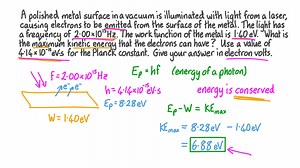 A polished metal surface in a vacuum is illuminated with light from a laser,
causing electrons to be emitted from the surface of the metal. The light has
a frequency of 2.00×10¹⁵ Hz. The work function of the metal is 1.40 eV. What is
the maximum kinetic energy that the electrons can have? Use a value of
4.14×10⁻¹⁵ eVs for the Planck constant. Give your answer in electron volts.
f = 2.00×10¹⁵ Hz
e⁻ e⁻
W = 1.40 eV
h = 4.14×10⁻¹⁵ eVs
Eₚ = 8.28 eV
Eₚ = hf (energy of a photon)
energy is conserved
Eₚ - W = KEmax
KEmax = 8.28 eV - 1.40 eV
= 6.88 eV